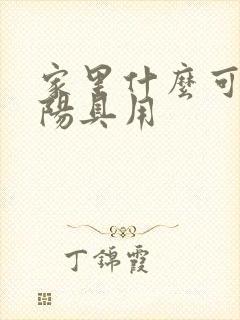 家里什麼可
陽具用
丁錦霞